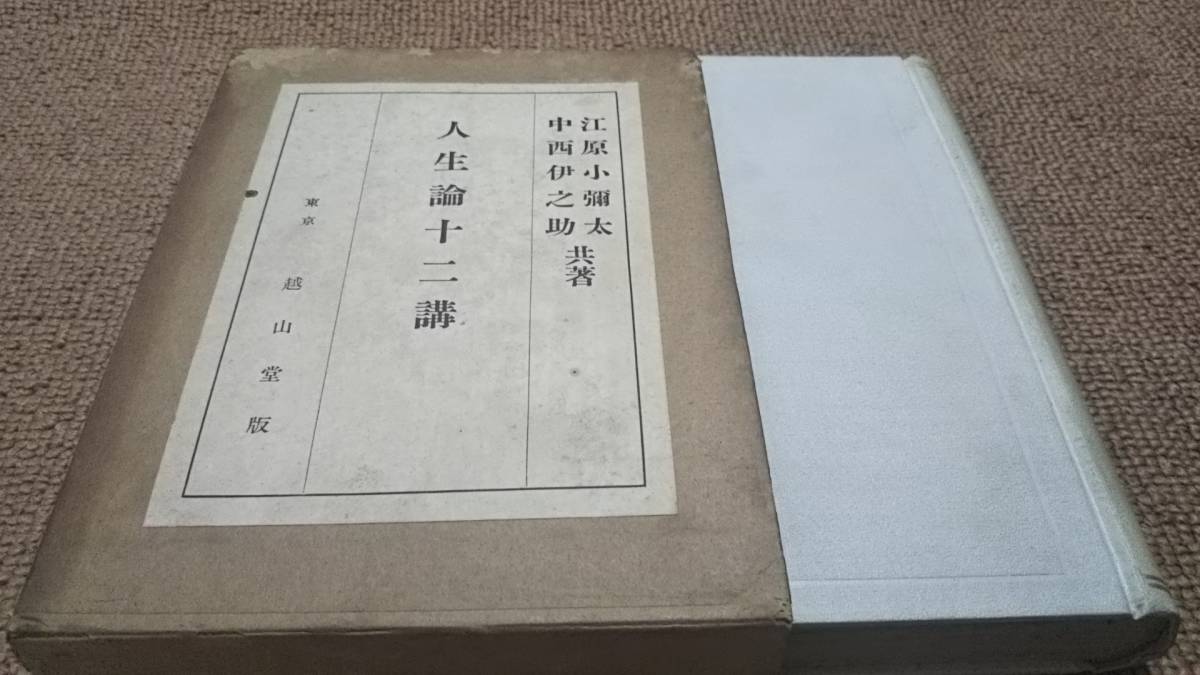 江原小彌太
中西伊之助
共著
人生論十二講
東京 越山堂版